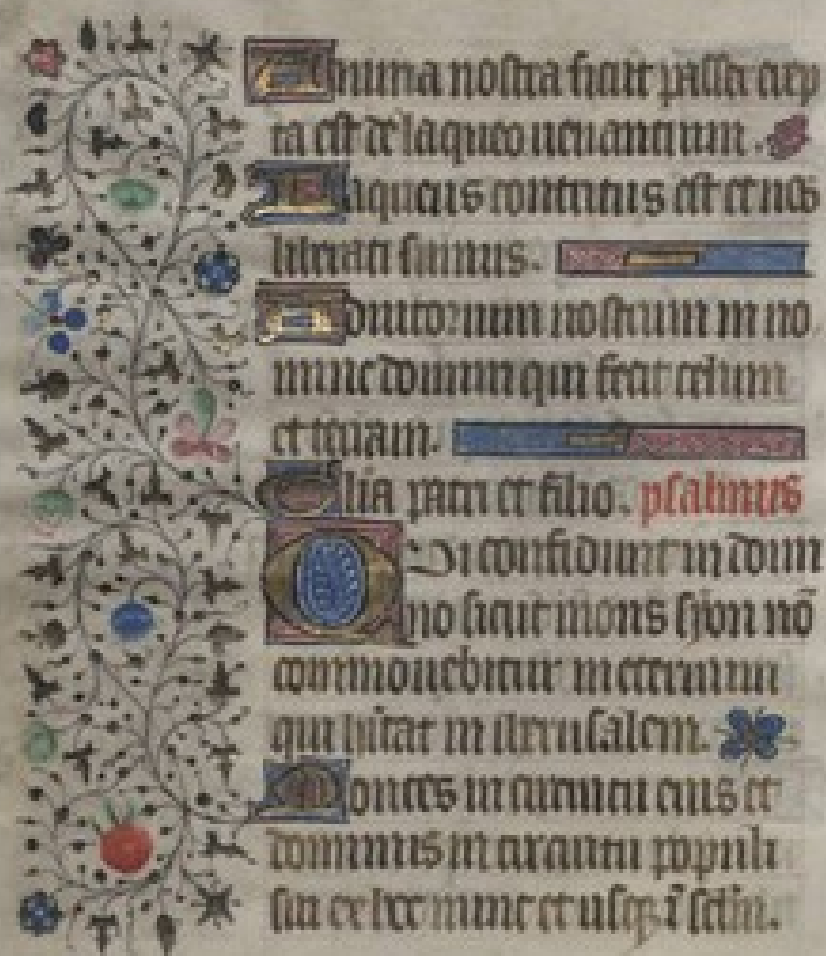 Anima nostra sicut passer erep
ta est de laqueo uenantium.
Laqueus contritus est et nos
liberati sumus.
Adiutorium nostrum in no
mine domini qui fecit celum
et terram.
Glia patri et filio. psalmus
Qui confidunt in domi
no sicut mons syon nō
commouebitur in eternum
qui hītat in iherusalem.
Montes in circuitu eius et
dominus in circuitu populi
sui ex hoc nunc et usqz ī sclm.